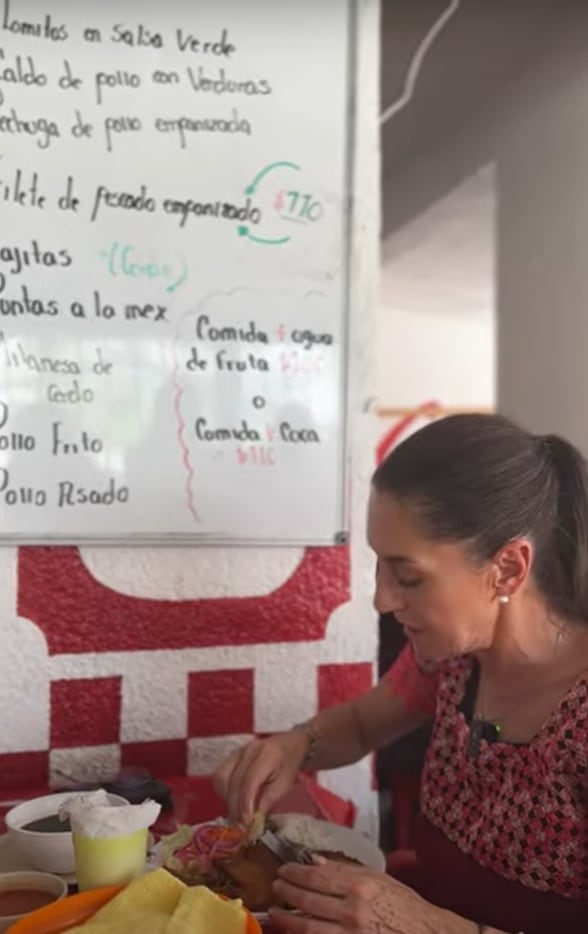 Lomitos en Salsa Verde
Caldo de pollo con Verduras
echuga de pollo empanizada
ilete de pescado empanizado $110
ajitas (Cerdo)
ontas a la mex
Milanesa de
Cerdo
ollo Frito
Pollo Asado
Comida + agua
de fruta
o
Comida + Coca